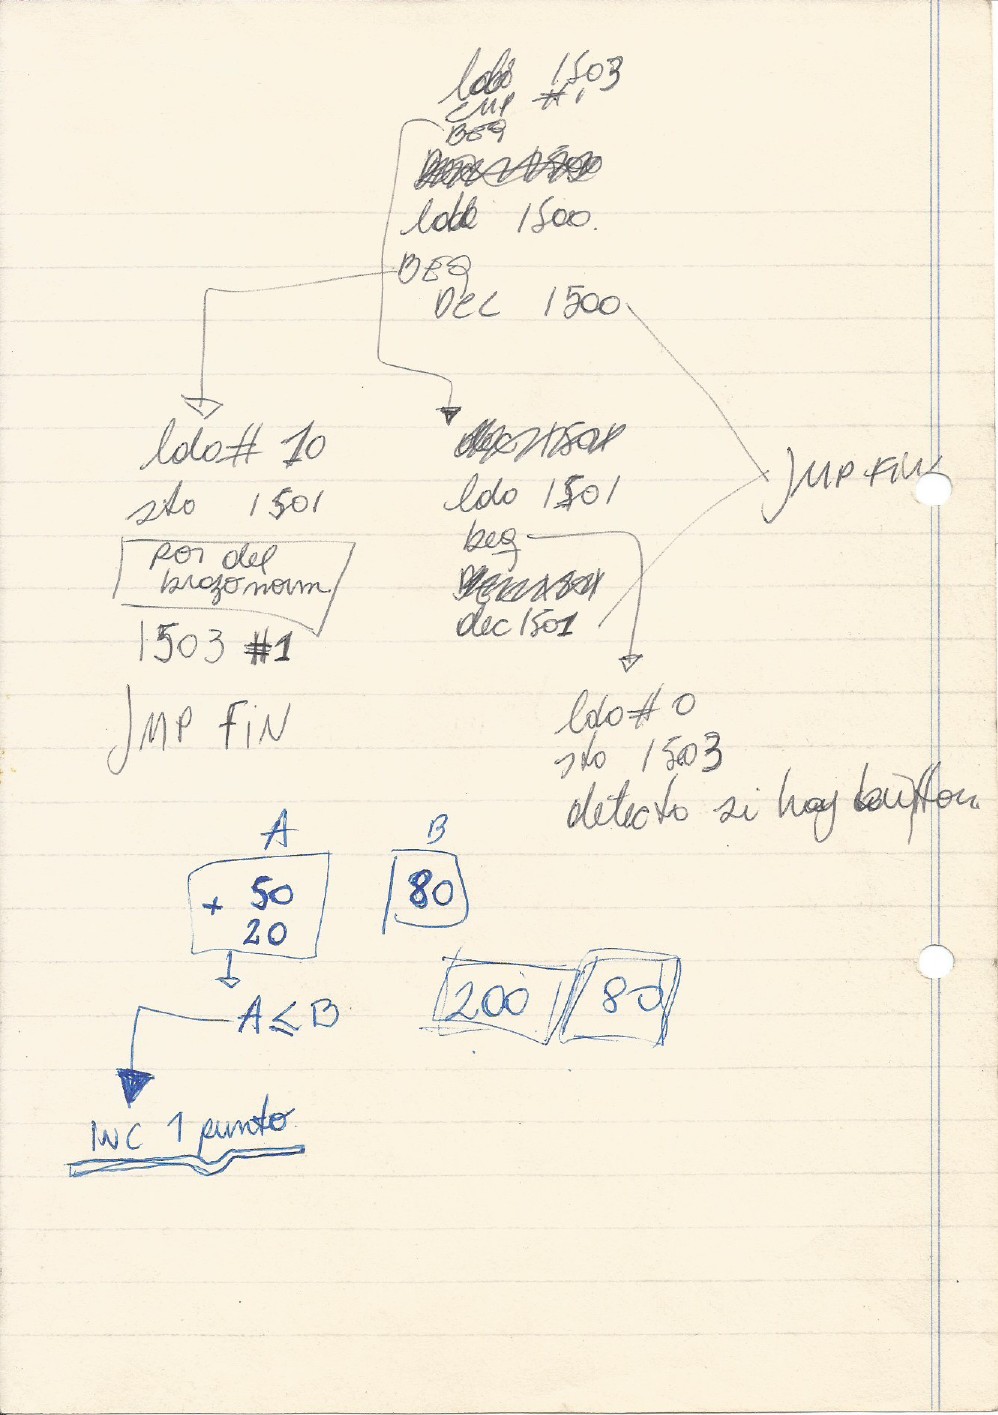 lda 1503
CMP #1
BEQ
lda 1500.
BEQ
DEC 1500
lda # 10
sta 1501
pos del
brazo norm
1503 #1
JMP FIN
lda 1501
beq
dec 1501
JMP FIN
lda # 0
sta 1503
detecto si hay
A
+ 50
20
B
80
A ≤ B
200
80
INC 1 punto